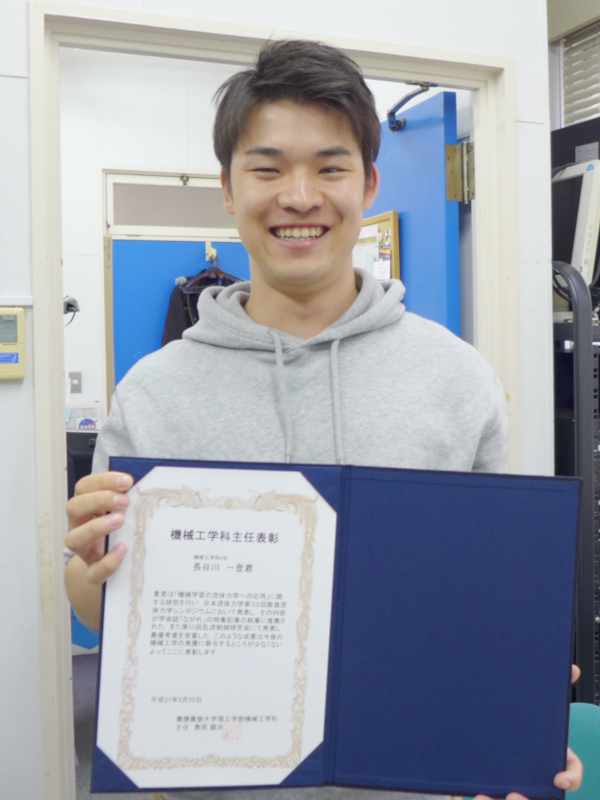 機械工学科主任表彰
機械工学科4年
長谷川 一登君
貴君は「機械学習の流体力学への応用」に関
する研究を行い 日本流体力学第32回数値流
体力学シンポジウムにおいて発表し その内容
が学会誌「ながれ」の特集記事の執筆に推薦さ
れた また第15回乱流制御研究会にて発表し
最優秀賞を受賞した このような成果は今後の
機械工学の発展に寄与するところが少なくない
よってここに表彰します
平成31年3月25日
慶應義塾大学理工学部機械工学科
主任 泰岡 顕治
NASA